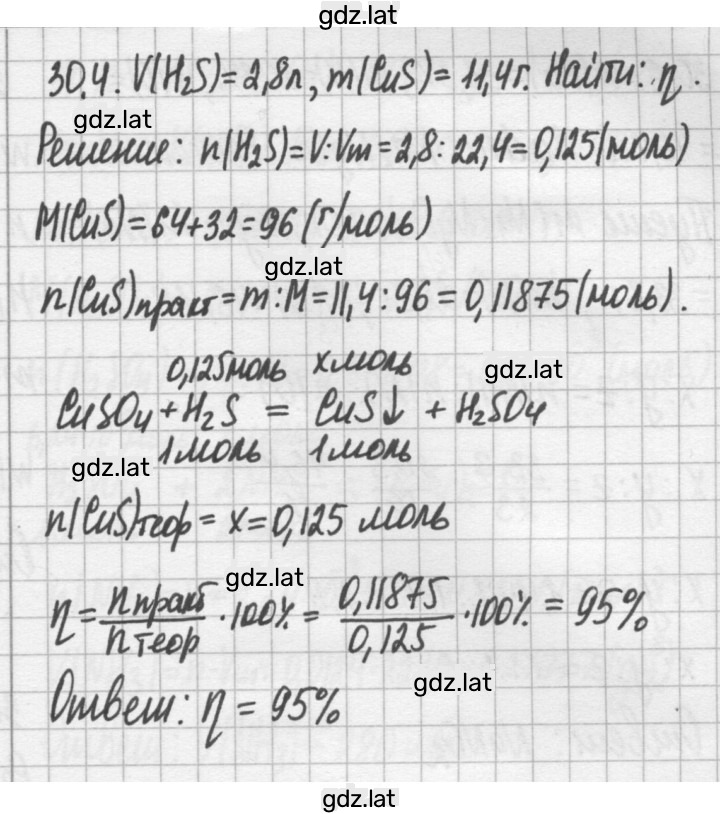 gdz.lat
30.4. V(H₂S)=2,8л, m(CuS)=11,4г. Найти: η.
gdz.lat
Решение: n(H₂S)=V:Vm=2,8:22,4=0,125(моль)
M(CuS)=64+32=96 (г/моль)
gdz.lat
n(CuS)практ=m:M=11,4:96=0,11875(моль).
0,125моль xмоль
gdz.lat
CuSO₄+H₂S = CuS↓ + H₂SO₄
1моль 1моль
gdz.lat
n(CuS)теор=x=0,125 моль
gdz.lat
η = nпракт/nтеор · 100% = 0,11875/0,125 · 100% = 95%
gdz.lat
Ответ: η = 95%
gdz.lat